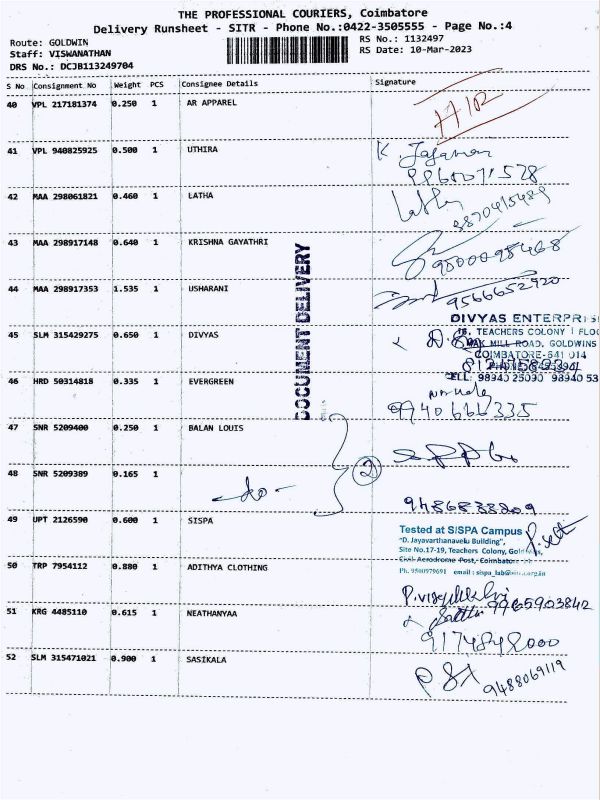 THE PROFESSIONAL COURIERS, Coimbatore
Delivery Runsheet - SITR - Phone No.:0422-3505555 - Page No.:4
Route: GOLDWIN
Staff: VISWANATHAN
DRS No.: DCJB113249704
RS No.: 1132497
RS Date: 10-Mar-2023
S No Consignment No Weight PCS Consignee Details Signature
40 VPL 217181374 0.250 1 AR APPAREL
41 VPL 940825925 0.500 1 UTHIRA
42 MAA 298061821 0.460 1 LATHA
Latha
43 MAA 298917148 0.640 1 KRISHNA GAYATHRI
95000 95468
44 MAA 298917353 1.535 1 USHARANI
9566652920
DOCUMENT DELIVERY
DIVYAS ENTERPRIS
TEACHERS COLONY I FLO
OAK MILL ROAD, GOLDWINS
COIMBATORE-641 014
CELL: 98940 25090 98940 53
45 SLM 315429275 0.650 1 DIVYAS
46 HRD 50314818 0.335 1 EVERGREEN
9940666335
47 SNR 5209400 0.250 1 BALAN LOUIS
2
48 SNR 5209389 0.165 1
-do-
9486838809
49 UPT 2126590 0.600 1 SISPA
Tested at SISPA Campus
"D. Jayavarthanavelu Building",
Site No.17-19, Teachers Colony, Goldwins,
Civil Aerodrome Post, Coimbatore
Ph. 9500979691 email : sispa_lab@sitra.org.in
50 TRP 7954112 0.880 1 ADITHYA CLOTHING
9965903842
51 KRG 4485110 0.615 1 NEATHANYAA
52 SLM 315471021 0.900 1 SASIKALA
9488069119